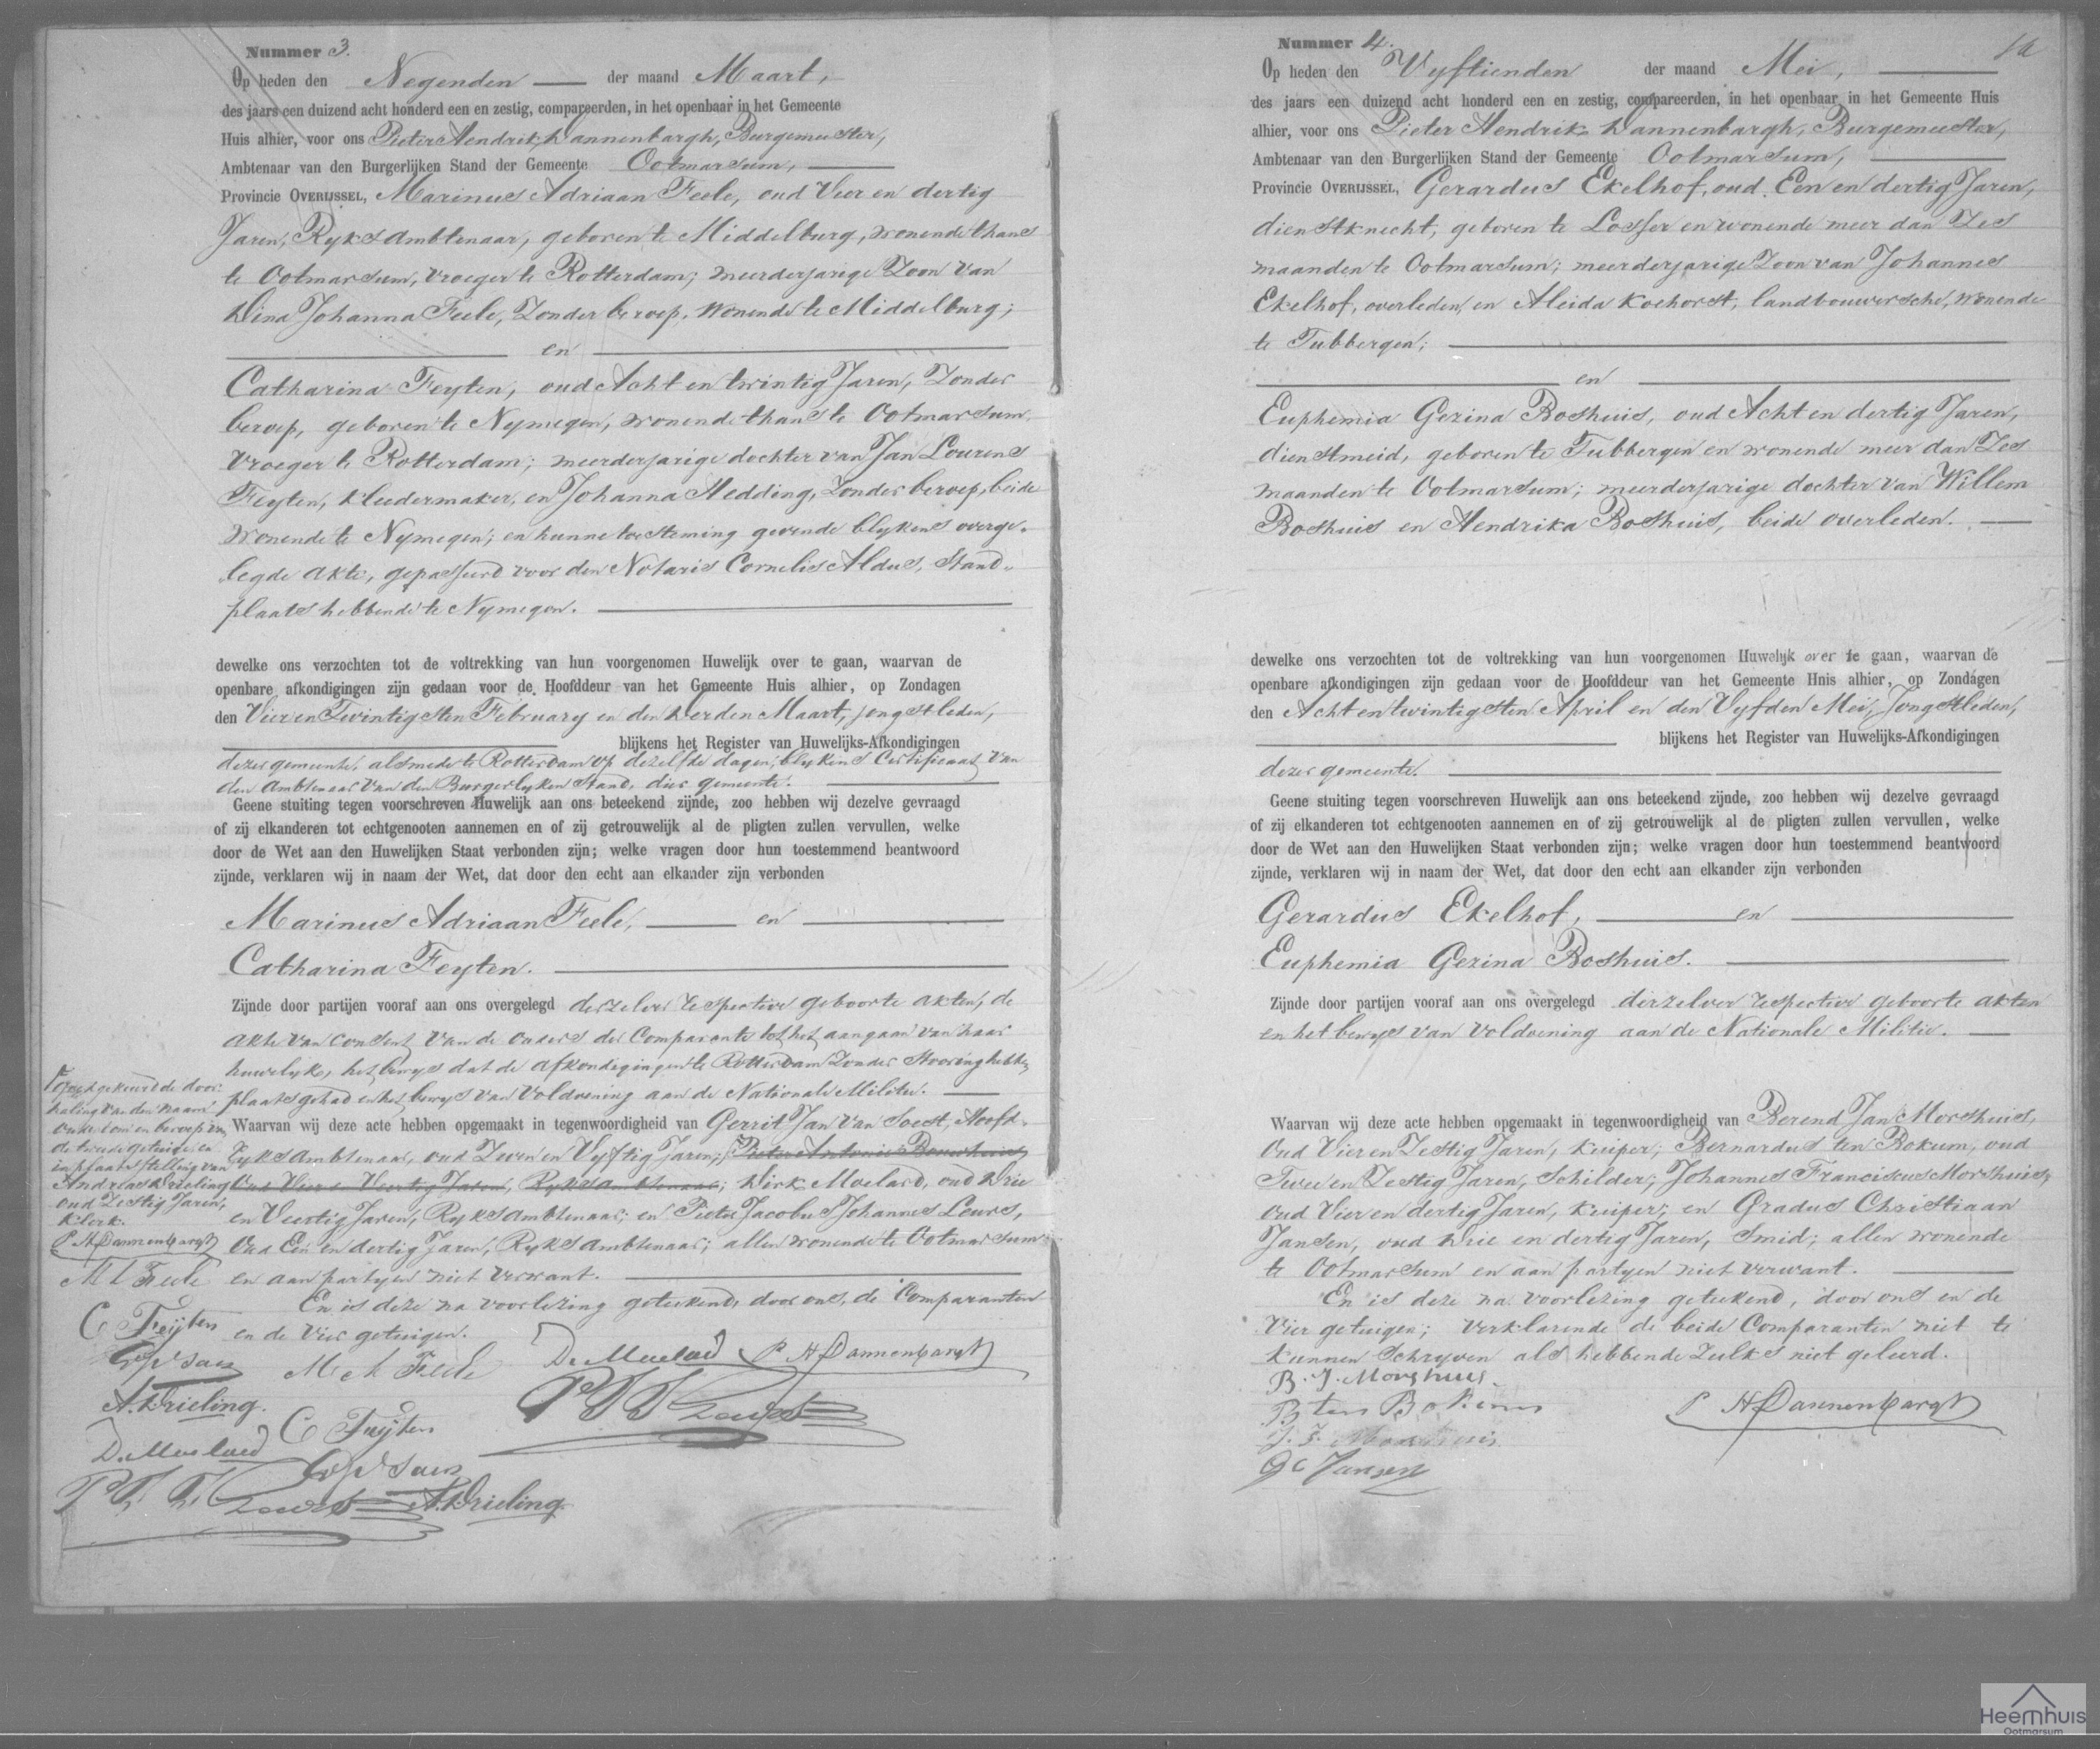 Nummer 3.
Op heden den Negenden der maand Maart,
des jaars een duizend acht honderd een en zestig, compareerden, in het openbaar in het Gemeente
Huis alhier, voor ons Pieter Hendrik Dannenbargh, Burgemeester,
Ambtenaar van den Burgerlijken Stand der Gemeente Ootmarsum,
Provincie OVERIJSSEL, Marinus Adriaan Feele, oud Vier en dertig
Jaren, Ryks Ambtenaar, geboren te Middelburg, wonende thans
te Ootmarsum, vroeger te Rotterdam; meerderjarige Zoon van
Dina Johanna Feele, Zonder beroep, wonende te Middelburg;
en
Catharina Feyten, oud Acht en twintig Jaren, Zonder
beroep, geboren te Nymegen, wonende thans te Ootmarsum,
vroeger te Rotterdam; meerderjarige dochter van Jan Lourens
Feyten, kleedermaker, en Johanna Hedding, Zonder beroep, beide
wonende te Nymegen; en hunne toesteming gevende blykens overge-
legde akte, gepasseerd voor den Notaris Cornelis Aldus, Stand-
plaats hebbende te Nymegen.
dewelke ons verzochten tot de voltrekking van hun voorgenomen Huwelijk over te gaan, waarvan de
openbare afkondigingen zijn gedaan voor de Hoofddeur van het Gemeente Huis alhier, op Zondagen
den Vier en Twintigsten February en den Derden Maart, jongstleden,
blijkens het Register van Huwelijks-Afkondigingen
dezer gemeente, alsmede te Rotterdam op dezelfde dagen, blykens Certificaat van
den Ambtenaar van den Burgerlyken Stand, dier gemeente.
Geene stuiting tegen voorschreven Huwelijk aan ons beteekend zijnde, zoo hebben wij dezelve gevraagd
of zij elkanderen tot echtgenooten aannemen en of zij getrouwelijk al de pligten zullen vervullen, welke
door de Wet aan den Huwelijken Staat verbonden zijn; welke vragen door hun toestemmend beantwoord
zijnde, verklaren wij in naam der Wet, dat door den echt aan elkander zijn verbonden
Marinus Adriaan Feele, en
Catharina Feyten.
Zijnde door partijen vooraf aan ons overgelegd derzelver respective geboorte akten, de
akte van consent van de ouders der Comparante tot het aangaan van haar
huwelyk, het bewys dat de afkondigingen te Rotterdam Zonder Stooring hebben
plaats gehad en het bewys van Voldoening aan de Nationale Militie.
Waarvan wij deze acte hebben opgemaakt in tegenwoordigheid van Gerrit Jan van Soest, Hoofd-
ryks ambtenaar, oud Zeven en Vyftig Jaren; Pieter Antonie
Oud Vier en Veertig Jaren, Ryks ambtenaar; Dirk Moelard, oud Drie
en Veertig Jaren, Ryks Ambtenaar; en Pieter Jacobus Johannes Leurs,
Oud Een en dertig Jaren, Ryks ambtenaar; allen wonende te Ootmarsum
en aan partyen niet verwant.
En is deze na voorlezing geteekend, door ons, de Comparanten
en de Vier getuigen.
goedgekeurd de door-
haling van den naam
ouderdom en beroep van
de tweede getuige, en
in plaats stelling van
Andreas Krieling
oud Zestig Jaren,
klerk.
P H Dannenbargh
M A Feele
C Feijten
A. Krieling.
D. Moelard
M A Feele
D. Moelard P H Dannenbargh
C Feijten
A. Krieling
Nummer 4.
Op heden den Vyftienden der maand Mei,
des jaars een duizend acht honderd een en zestig, compareerden, in het openbaar in het Gemeente Huis
alhier, voor ons Pieter Hendrik Dannenbargh, Burgemeester,
Ambtenaar van den Burgerlijken Stand der Gemeente Ootmarsum,
Provincie OVERIJSSEL, Gerardus Ekelhof, oud Een en dertig Jaren,
dienstknecht, geboren te Losser en wonende meer dan Zes
maanden te Ootmarsum; meerderjarige Zoon van Johannes
Ekelhof, overleden, en Aleida Koehorst, landbouwersche, wonende
te Tubbergen;
en
Euphemia Gezina Boshuis, oud Acht en dertig Jaren,
dienstmeid, geboren te Tubbergen en wonende meer dan Zes
maanden te Ootmarsum; meerderjarige dochter van Willem
Boshuis en Hendrika Boshuis, beide overleden.
dewelke ons verzochten tot de voltrekking van hun voorgenomen Huwelijk over te gaan, waarvan de
openbare afkondigingen zijn gedaan voor de Hoofddeur van het Gemeente Hnis alhier, op Zondagen
den Acht en twintigsten April en den Vyfden Mei, Jongstleden,
blijkens het Register van Huwelijks-Afkondigingen
dezer gemeente.
Geene stuiting tegen voorschreven Huwelijk aan ons beteekend zijnde, zoo hebben wij dezelve gevraagd
of zij elkanderen tot echtgenooten aannemen en of zij getrouwelijk al de pligten zullen vervullen, welke
door de Wet aan den Huwelijken Staat verbonden zijn; welke vragen door hun toestemmend beantwoord
zijnde, verklaren wij in naam der Wet, dat door den echt aan elkander zijn verbonden
Gerardus Ekelhof, en
Euphemia Gezina Boshuis.
Zijnde door partijen vooraf aan ons overgelegd derzelver respective geboorte akten
en het bewys van Voldoening aan de Nationale Militie.
Waarvan wij deze acte hebben opgemaakt in tegenwoordigheid van Berend Jan Morshuis,
Oud Vier en Zestig Jaren, kuiper; Bernardus ten Bokum, oud
Twee en Zestig Jaren, Schilder; Johannes Franciscus Morshuis,
oud Vier en dertig Jaren, kuiper; en Gradus Christiaan
Jansen, oud Drie en dertig Jaren, Smid; allen wonende
te Ootmarsum en aan partyen niet verwant.
En is deze na voorlezing geteekend, door ons en de
Vier getuigen; verklarende de beide Comparanten niet te
kunnen Schryven als hebbende Zulks niet geleerd.
B. J. Morshuis
B ten Bokum
P H Dannenbargh
J. F. Morshuis
G C Jansen
Heemhuis
Ootmarsum